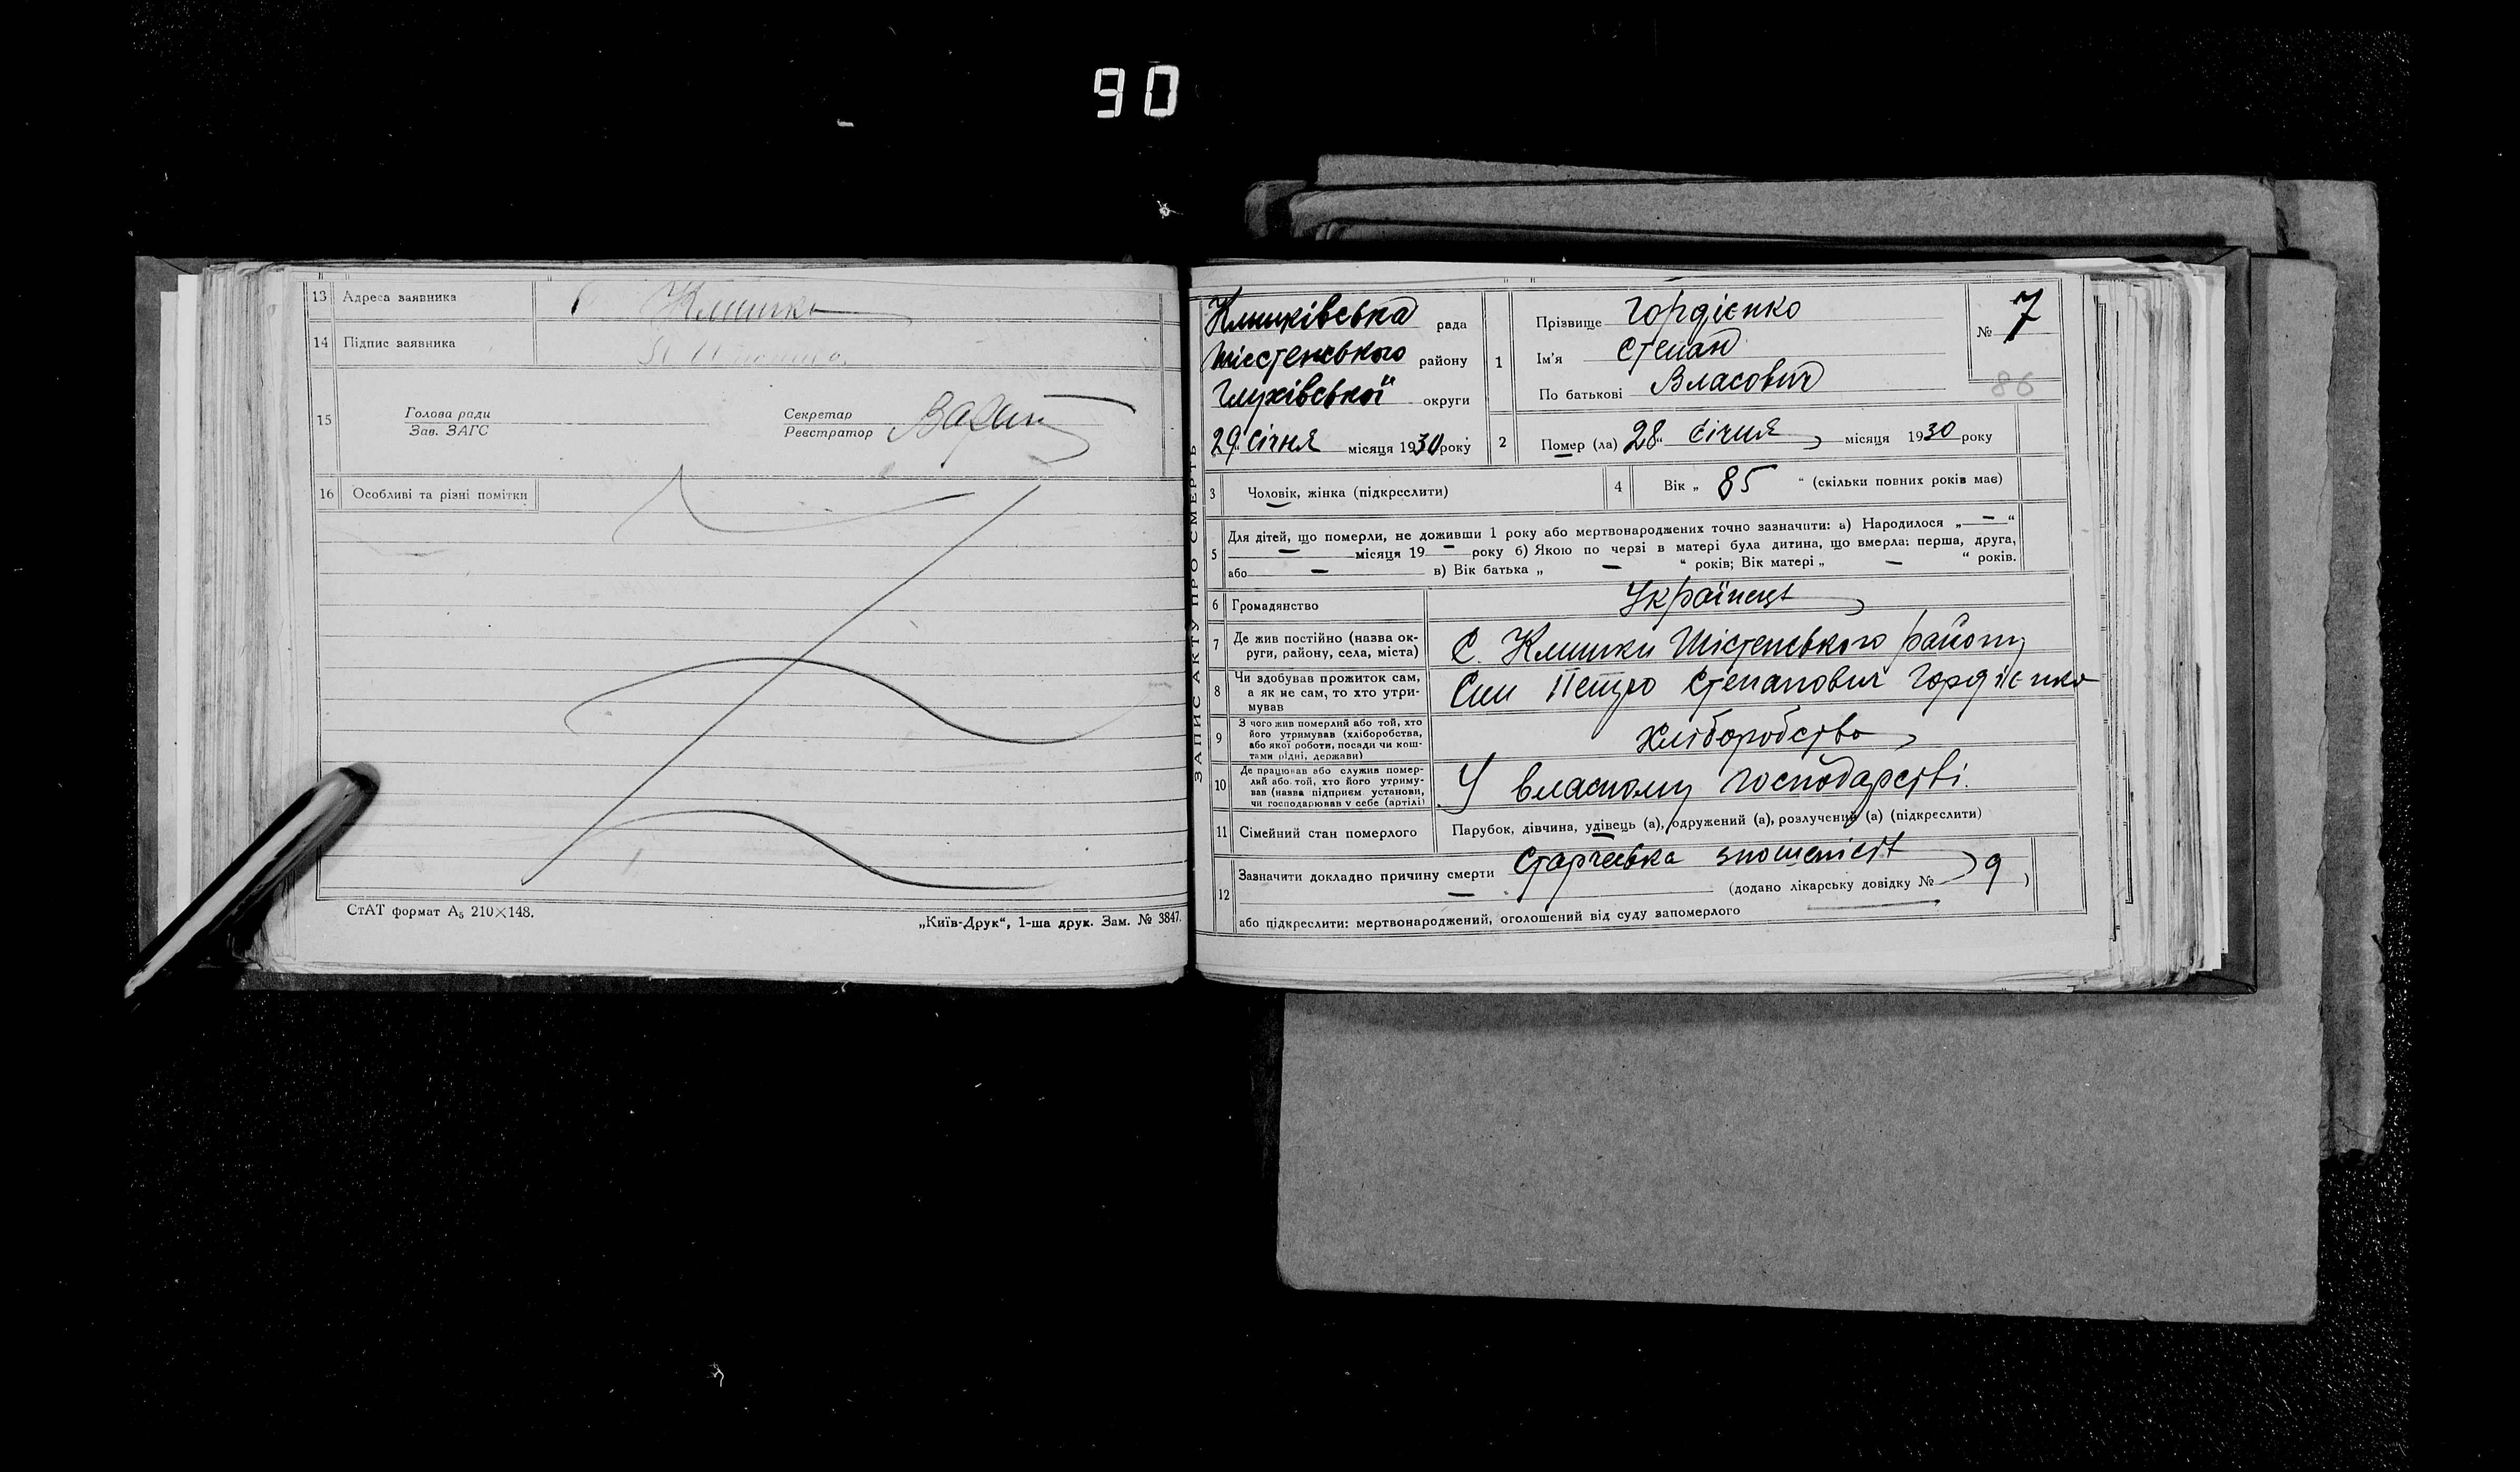 90
13 Адреса заявника Клишки
14 Підпис заявника
15 Голова ради Зав. ЗАГС Секретар Реєстратор
16 Особливі та різні помітки
СтАТ формат А₅ 210×148. „Київ-Друк“, 1-ша друк. Зам. № 3847.
ЗАПИС АКТУ ПРО СМЕРТЬ
Клишківська рада
Шістенського району
Глухівської округи
29 Січня місяця 1930 року
1 Прізвище Гордієнко
Ім'я Степан
По батькові Власович
№ 7
86
2 Помер (ла) 28 “ Січня місяця 1930 року
3 Чоловік, жінка (підкреслити) 4 Вік „ 85 “ (скільки повних років має)
5 Для дітей, що померли, не доживши 1 року або мертвонароджених точно зазначити: а) Народилося „ — “
— місяця 19 — року б) Якою по черзі в матері була дитина, що вмерла: перша, друга,
або — в) Вік батька „ — “ років; Вік матері „ — “ років.
6 Громадянство Українець
7 Де жив постійно (назва ок-
руги, району, села, міста) С. Клишки Шістенського району
8 Чи здобував прожиток сам,
а як не сам, то хто утри-
мував Син Петро Степанович Гордієнко
9 З чого жив померлий або той, хто
його утримував (хліборобства,
або якої роботи, посади чи кош-
тами рідні, держави) Хліборобство
10 Де працював або служив помер-
лий або той, хто його утриму-
вав (назва підприєм. установи,
чи господарював у себе (артілі) У власному господарстві.
11 Сімейний стан померлого Парубок, дівчина, удівець (а), одружений (а), розлучений (а) (підкреслити)
12 Зазначити докладно причину смерти Старчевка зношеніст
(додано лікарську довідку № 9 )
або підкреслити: мертвонароджений, оголошений від суду запомерлого